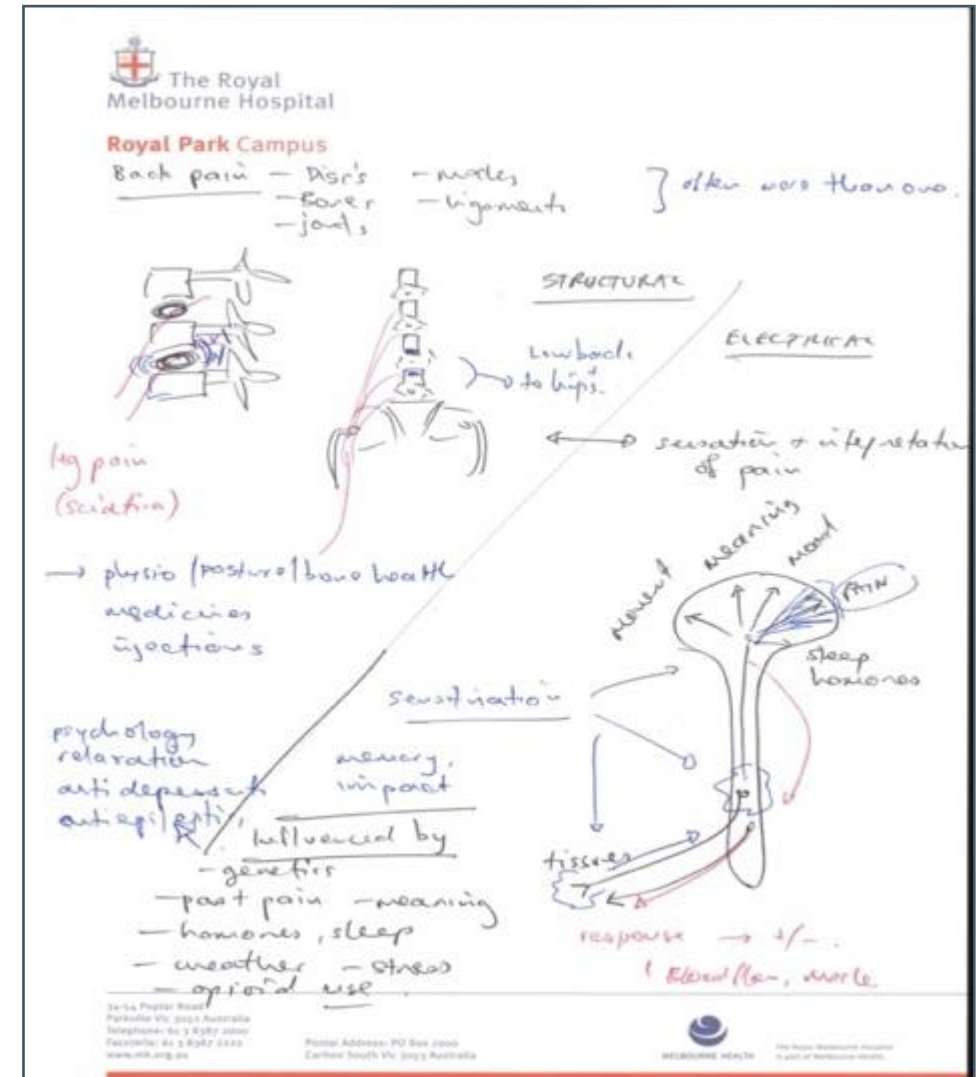 The Royal
Melbourne Hospital
Royal Park Campus
Back pain - Disc's - muscles
- Bones - ligaments
- joints
} often more than one.
STRUCTURAL
ELECTRICAL
Low back
to hips.
sensation + interpretation
of pain
leg pain
(sciatica)
→ physio / posture / bone health
medicines
injections
movement
meaning
mood
PAIN
sleep
hormones
sensitization
psychology
relaxation
antidepressants
antiepileptic
memory,
impact
Influenced by
- genetics
- past pain - meaning
- hormones, sleep
- weather - stress
- opioid use
tissues
response → +/-
Blood flow, muscle
34-54 Poplar Road
Parkville Vic 3052 Australia
Telephone: 61 3 8387 2000
Facsimile: 61 3 8387 2222
www.mh.org.au
Postal Address: PO Box 7000
Carlton South Vic 3053 Australia
MELBOURNE HEALTH
The Royal Melbourne Hospital
is part of Melbourne Health.